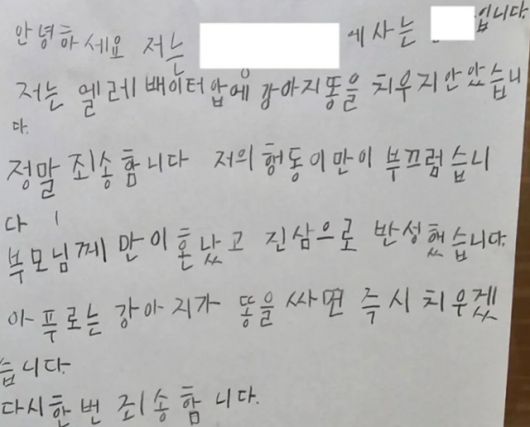 안녕하세요 저는 에사는 입니다.
저는 엘레배이터앞에 강아지똥을 치우지안았습니
다.
정말 죄송합니다 저의 행동이만이 부끄럽습니
다
부모님께 만이혼났고 진삼으로 반성했습니다.
아푸로는 강아지가 똥을 싸면 즉시 치우겠
습니다.
다시한번 죄송합니다.